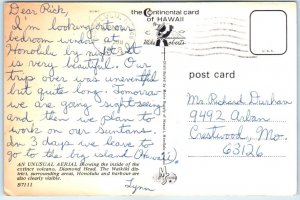 the Continental card
of HAWAII
by
Mike Roberts
post card
Dear Rick,
I'm looking out our
bedroom window at
Honolulu by night. It
is very beautiful. Our
trip over was uneventful
but quite long. Tomorrow
we are going "sightseeing"
and then we plan to
work on our suntans.
In 3 days we leave to
go to the big island (Hawaii).
Lynn
Mr. Richard Dunham
9492 Arban
Crestwood, Mo.
63126
AN UNUSUAL AERIAL showing the inside of the
extinct volcano, Diamond Head. The Waikiki dis-
trict, surrounding areas, Honolulu and harbour are
also clearly visible.
B7111